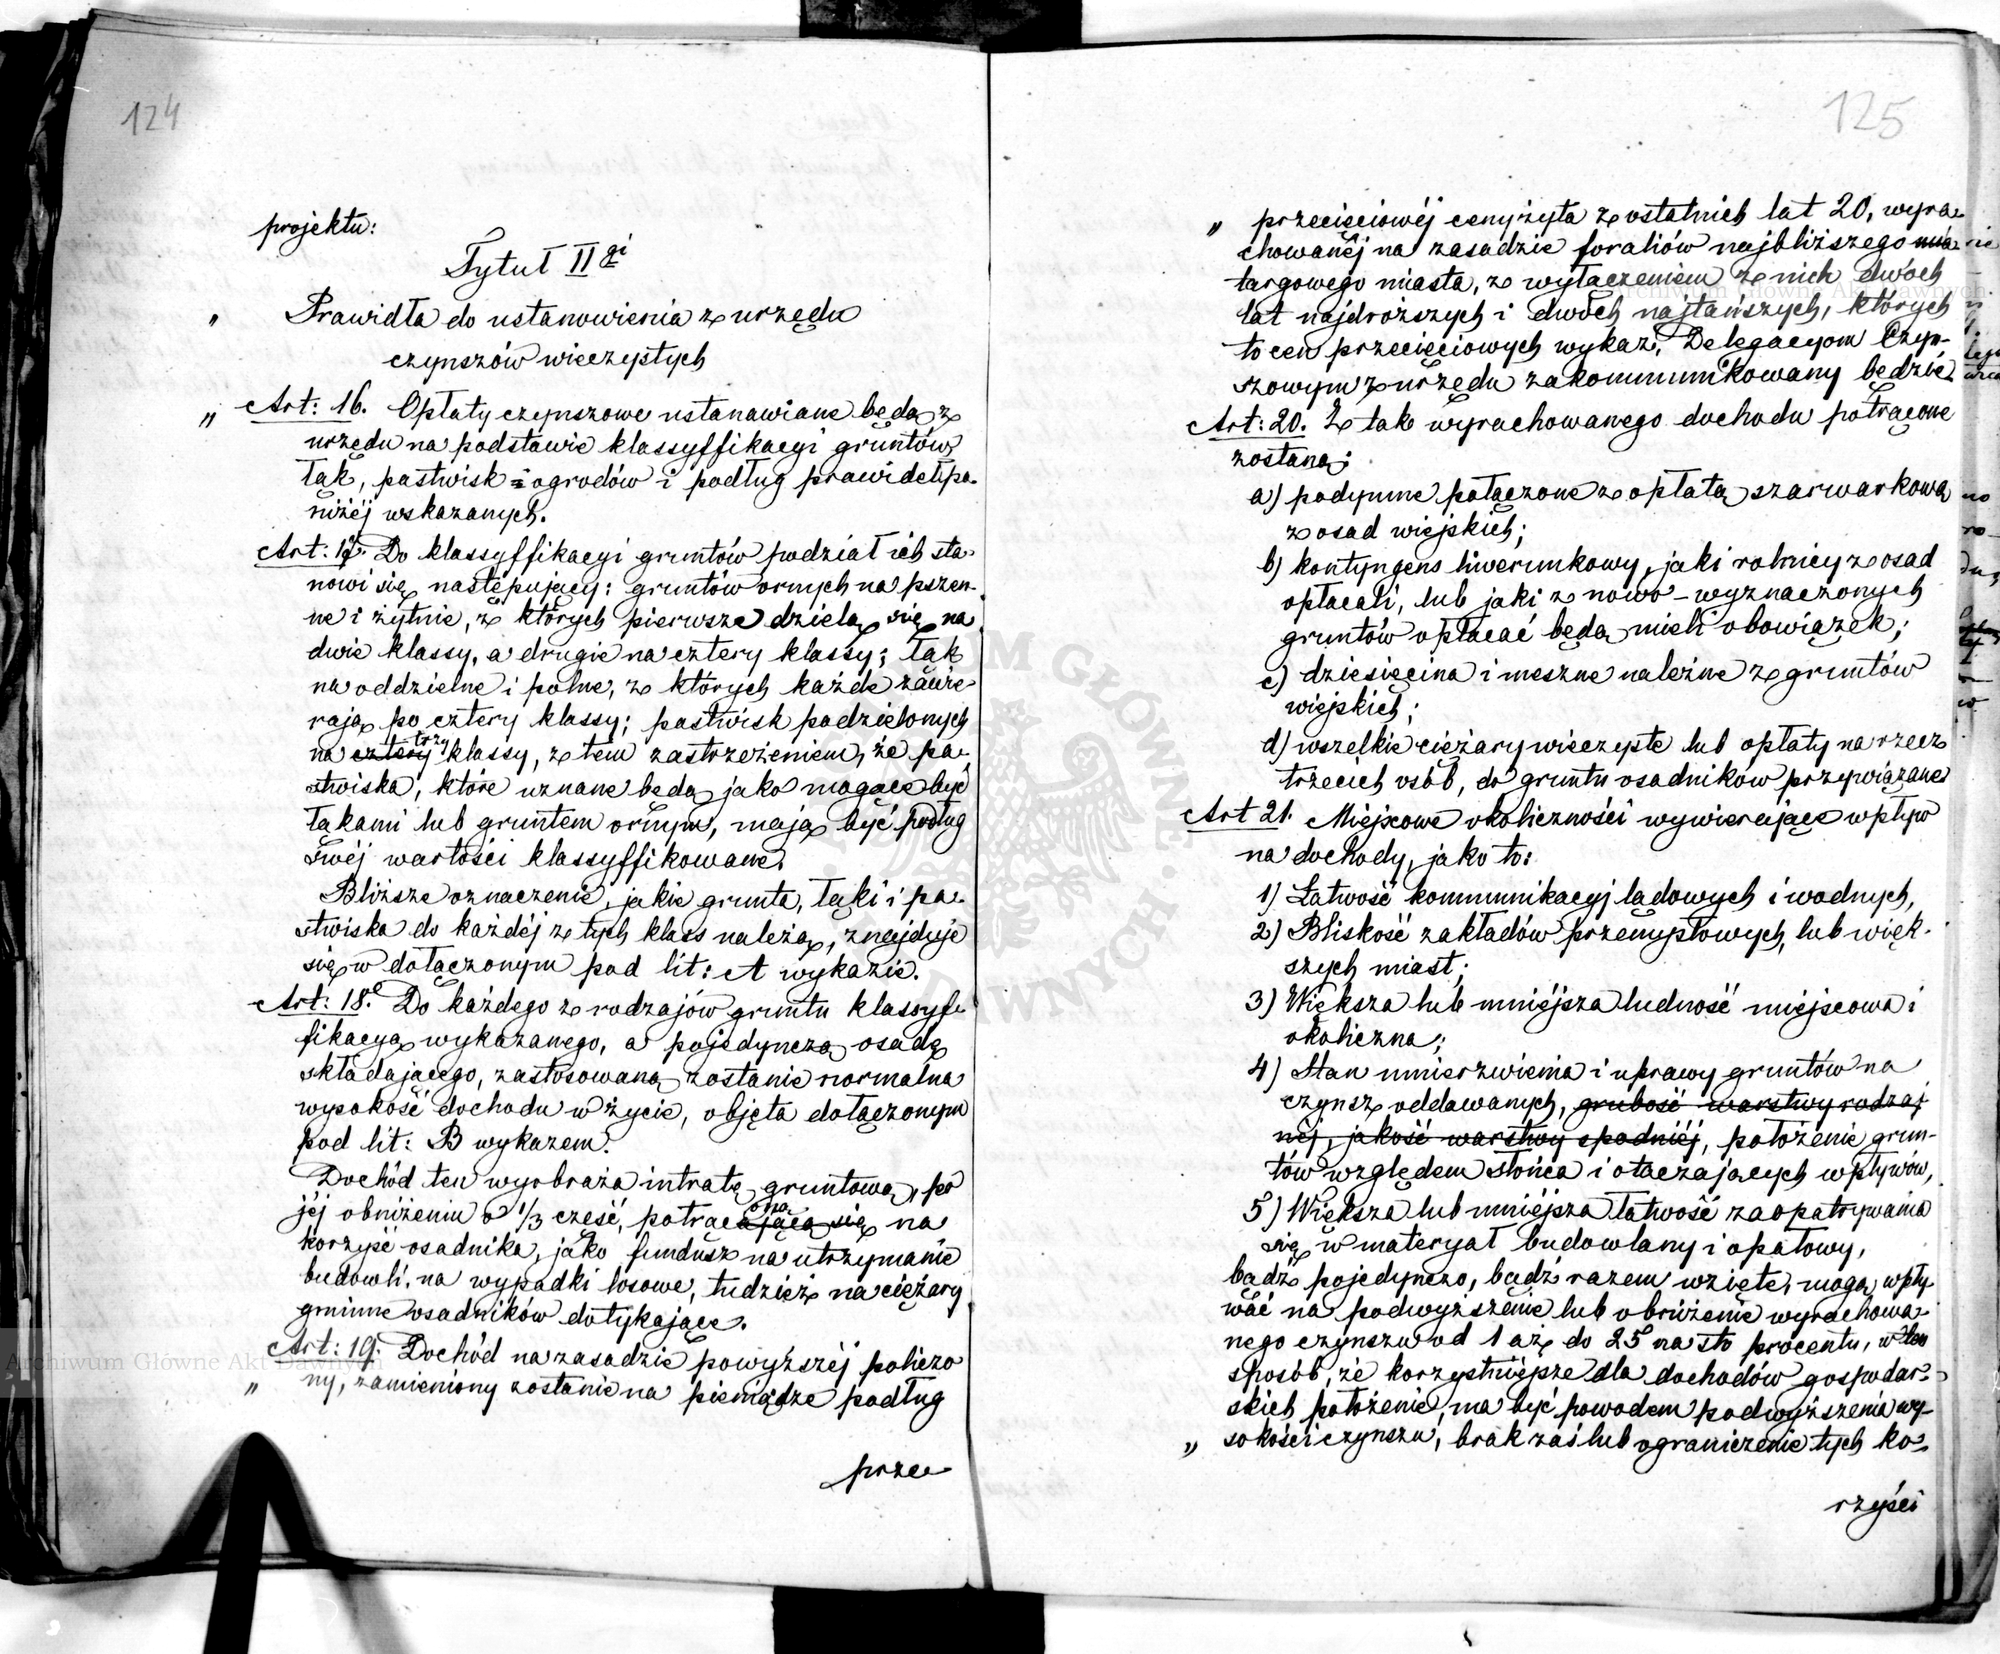 124
projektu:
Tytuł II gi
„ Prawidła do ustanowienia z urzędu
czynszów wieczystych
„ Art: 16. Opłaty czynszowe ustanawiane będą z
urzędu na podstawie klassyffikacyi gruntów,
łąk, pastwisk i ogrodów i podług prawideł po-
niżéj wskazanych.
Art: 17. Do klassyffikacyi gruntów podział ich sta-
nowi się następujący: gruntów ornych na pszen-
ne i żytnie, z których pierwsze dzielą się na
dwie klassy, a drugie na cztery klassy; łąk
na oddzielne i polne, z których każde zawie-
rają po cztery klassy; pastwisk podzielonych
na cztery trzy klassy, z tem zastrzeżeniem, że pa-
stwiska, które uznane będą jako mogące być
łąkami lub gruntem ornym, mają być podług
swéj wartości klassyffikowane.
Bliższe oznaczenie, jakie grunta, łąki i pa-
stwiska do każdéj z tych klass należą, znajduje
się w dołączonym pod lit: A wykazie.
Art: 18. Do każdego z rodzajów gruntu klassyf-
fikacyą wykazanego, a pojedynczą osadę
składającego, zastosowaną zostanie normalna
wysokość dochodu w życie, objęta dołączonym
pod lit: B wykazem.
Dochód ten wyobraża intratę gruntową, po
jéj obniżeniu o 1/3 część, potrącającą się oną na
korzyść osadnika, jako fundusz na utrzymanie
budowli, na wypadki losowe, tudzież na ciężary
gminne osadników dotykające.
Art: 19. Dochód na zasadzie powyższéj policzo
„ ny, zamieniony zostanie na pieniądze podług
prze
125
„ przecięciowéj ceny żyta z ostatnich lat 20, wyra-
chowanéj na zasadzie foraliów najbliższego mia-
targowego miasta, z wyłączeniem z nich dwóch
lat najdroższych i dwóch najtańszych, których
to cen przecięciowych wykaz, Delegacyom Czyn-
szowym z urzędu zakommunikowany będzie.
Art: 20. Z tak wyrachowanego dochodu potrącone
zostaną:
a) podymne połączone z opłatą szarwarkową
z osad wiejskich;
b) kontyngens liwerunkowy, jaki rolnicy z osad
opłacali, lub jaki z nowo-wyznaczonych
gruntów opłacać będą mieli obowiązek;
c) dziesięcina i meszne należne z gruntów
wiejskich;
d) wszelkie ciężary wieczyste lub opłaty na rzecz
trzecich osób, do gruntu osadników przywiązane
Art 21. Miejscowe okoliczności wywierające wpływ
na dochody, jako to:
1) Łatwość kommunikacyj lądowych i wodnych,
2) Bliskość zakładów przemysłowych, lub więk-
szych miast;
3) Większa lub mniéjsza ludność miejscowa i
okoliczna;
4) Stan umierzwienia i uprawy gruntów na
czynsz oddawanych, grubość warstwy rodzaj
néj, jakość warstwy spodniéj, położenie grun-
tów względem słońca i otaczających wpływów,
5) Większa lub mniéjsza łatwość zaopatrywania
się w materyał budowlany i opałowy,
bądź pojedynczo, bądź razem wzięte, mogą wpły-
wać na podwyższenie lub obniżenie wyrachowa-
nego czynszu od 1 aż do 25 na sto procentu, w ten
sposób, że korzystniéjsze dla dochodów gospodar-
skich położenie, ma być powodem podwyższenia wy-
„ sokości czynszu, brak zaś lub ograniczenie tych ko-
rzyści
Archiwum Główne Akt Dawnych